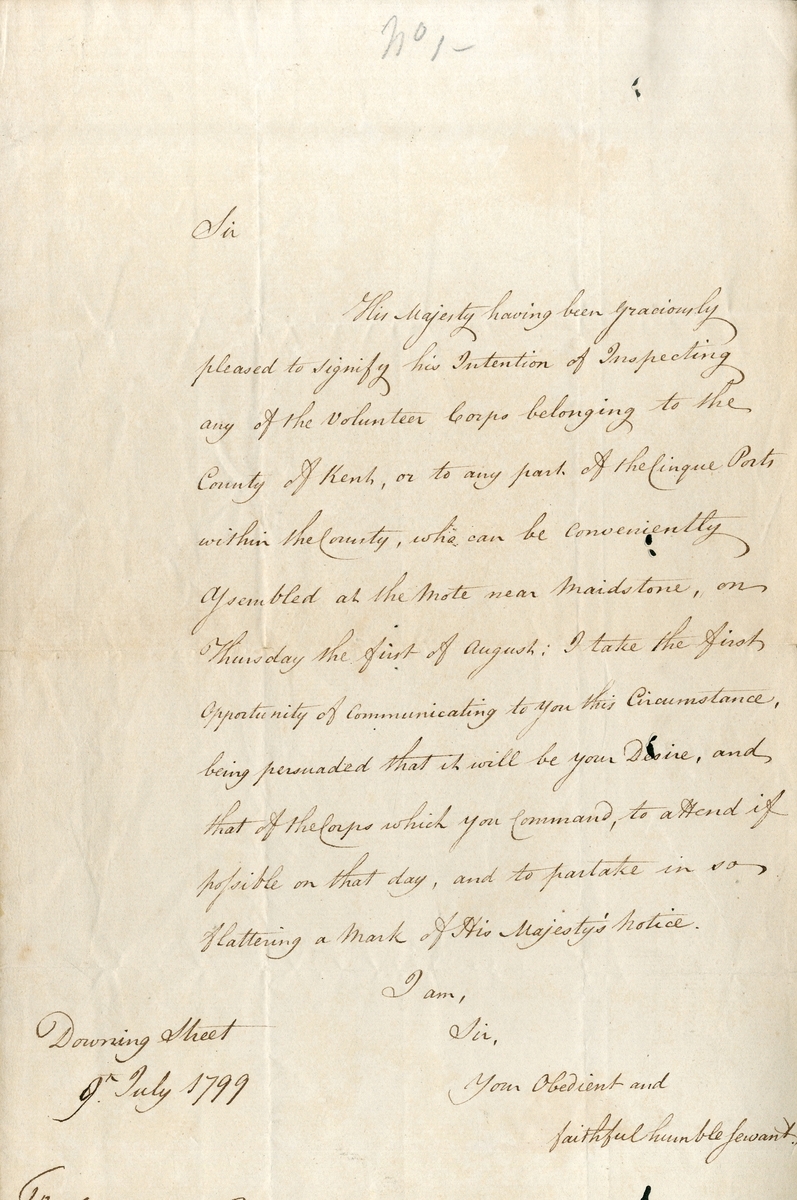 No. 1
Sir
His Majesty having been graciously
pleased to signify his Intention of Inspecting
any of the Volunteer Corps belonging to the
County of Kent, or to any part of the Cinque Ports
within the County, who can be conveniently
Assembled at the Mote near Maidstone, on
Thursday the first of August: I take the first
Opportunity of Communicating to you this Circumstance,
being persuaded that it will be your Desire, and
that of the Corps which you Command, to attend if
possible on that day, and to partake in so
flattering a Mark of His Majesty's Notice.
I am,
Sir,
Downing Street
9th July 1799
Your Obedient and
faithful humble Servant.